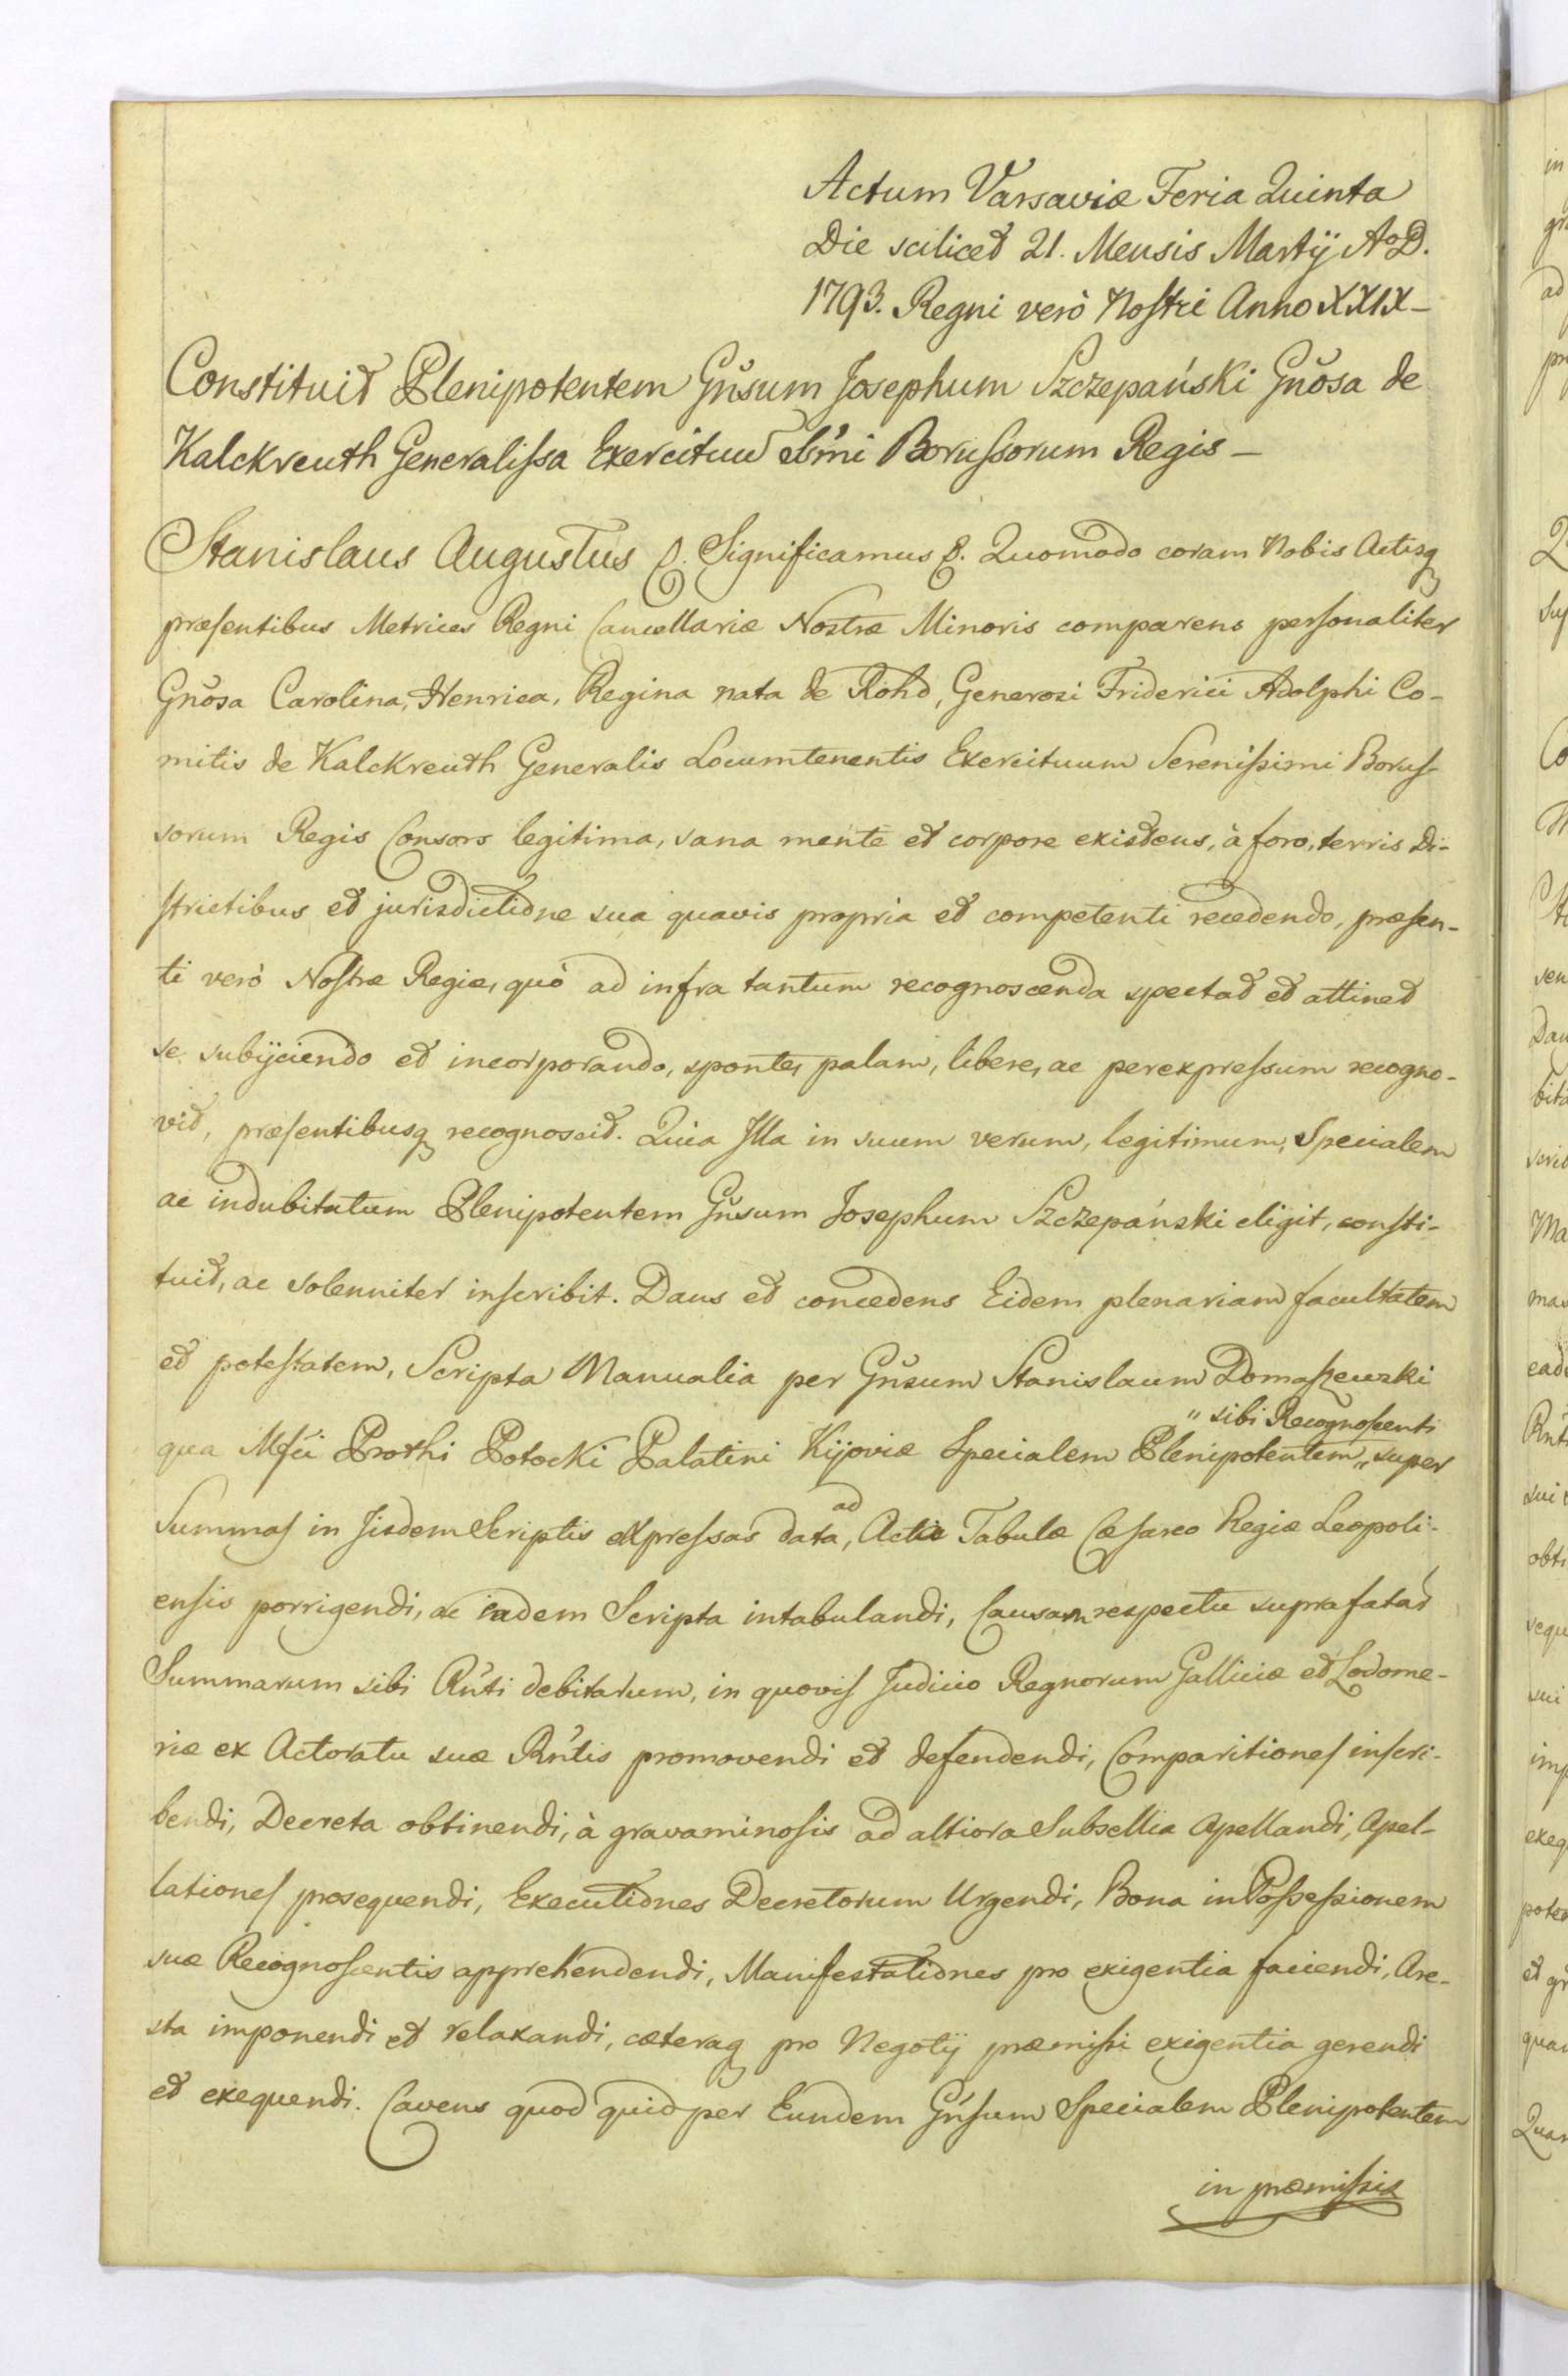 Actum Varsaviæ Feria Quinta
Die scilicet 21. Mensis Martij Aº D.
1793. Regni verò Nostri Anno XXIX –
Constituit Plenipotentem Gn̄sum Josephum Szczepański Gn̄osa de
Kalckreuth Generalissa Exercituu S̄r̄mi Borussorum Regis –
Stanislaus Augustus &. Significamus &. Quomodo coram Nobis Actisq
præsentibus Metrices Regni Cancellariæ Nostræ Minoris comparens personaliter
Gn̄osa Carolina, Henrica, Regina nata de Rohd, Generosi Friderici Adolphi Co-
mitis de Kalckreuth Generalis Locumtenentis Exercituum Serenissimi Borus-
sorum Regis Consors legitima, sana mente et corpore existens, à foro, terris Di-
strictibus et jurisdictione sua quavis propria et competenti recedendo, præsen-
ti verò Nostræ Regiæ, quò ad infra tantum recognoscenda spectat et attinet
se subijciendo et incorporando, sponte, palam, libere, ac per expressum recogno-
vit, præsentibusq recognoscit. Quia Illa in suum verum, legitimum, Specialem
ac indubitatum Plenipotentem Gn̄sum Josephum Szczepański eligit, consti-
tuit, ac solenniter inscribit. Dans et concedens Eidem plenariam facultatem
et potestatem, Scripta Manualia per Gn̄sum Stanislaum Domaszewski
" sibi Recognoscenti
qua Mf̄ci Prothi Potocki Palatini Kijoviæ Specialem Plenipotentem " super
ad
Summas in Jisdem Scriptis expressas data, Acta Tabulæ Cæsareo Regiæ Leopoli-
ensis porrigendi, ac eadem Scripta intabulandi, Causam respectu suprafatar
Summarum sibi Rn̄ti debitarum, in quovis Judicio Regnorum Galliciæ et Lodome-
riæ ex Actoratu suæ Rn̄tis promovendi et defendendi, Comparitiones inscri-
bendi, Decreta obtinendi, à gravaminosis ad altiora Subsellia Apellandi, Apel-
lationes prosequendi, Executiones Decretorum Urgendi, Bona in Possessionem
suæ Recognoscentis apprehendendi, Manifestationes pro exigentia faciendi, Are-
sta imponendi et relaxandi, cæteraq pro Negotij præmissi exigentia gerendi
et exequendi. Cavens quod quid per Eundem Gn̄sum Specialem Plenipotentem
in præmissis